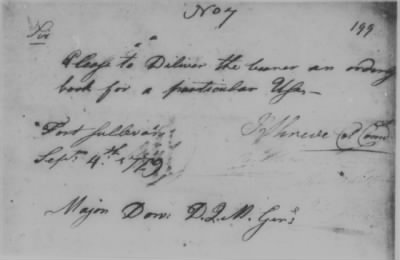 No 7
199
Sir
Please to Deliver the bearer an ordrly
book for a particular Use,—
Fort Sullevan
Sepr. 4th 1779
I Shreve Col Comd
Major Dow: D.Q.M. Genl